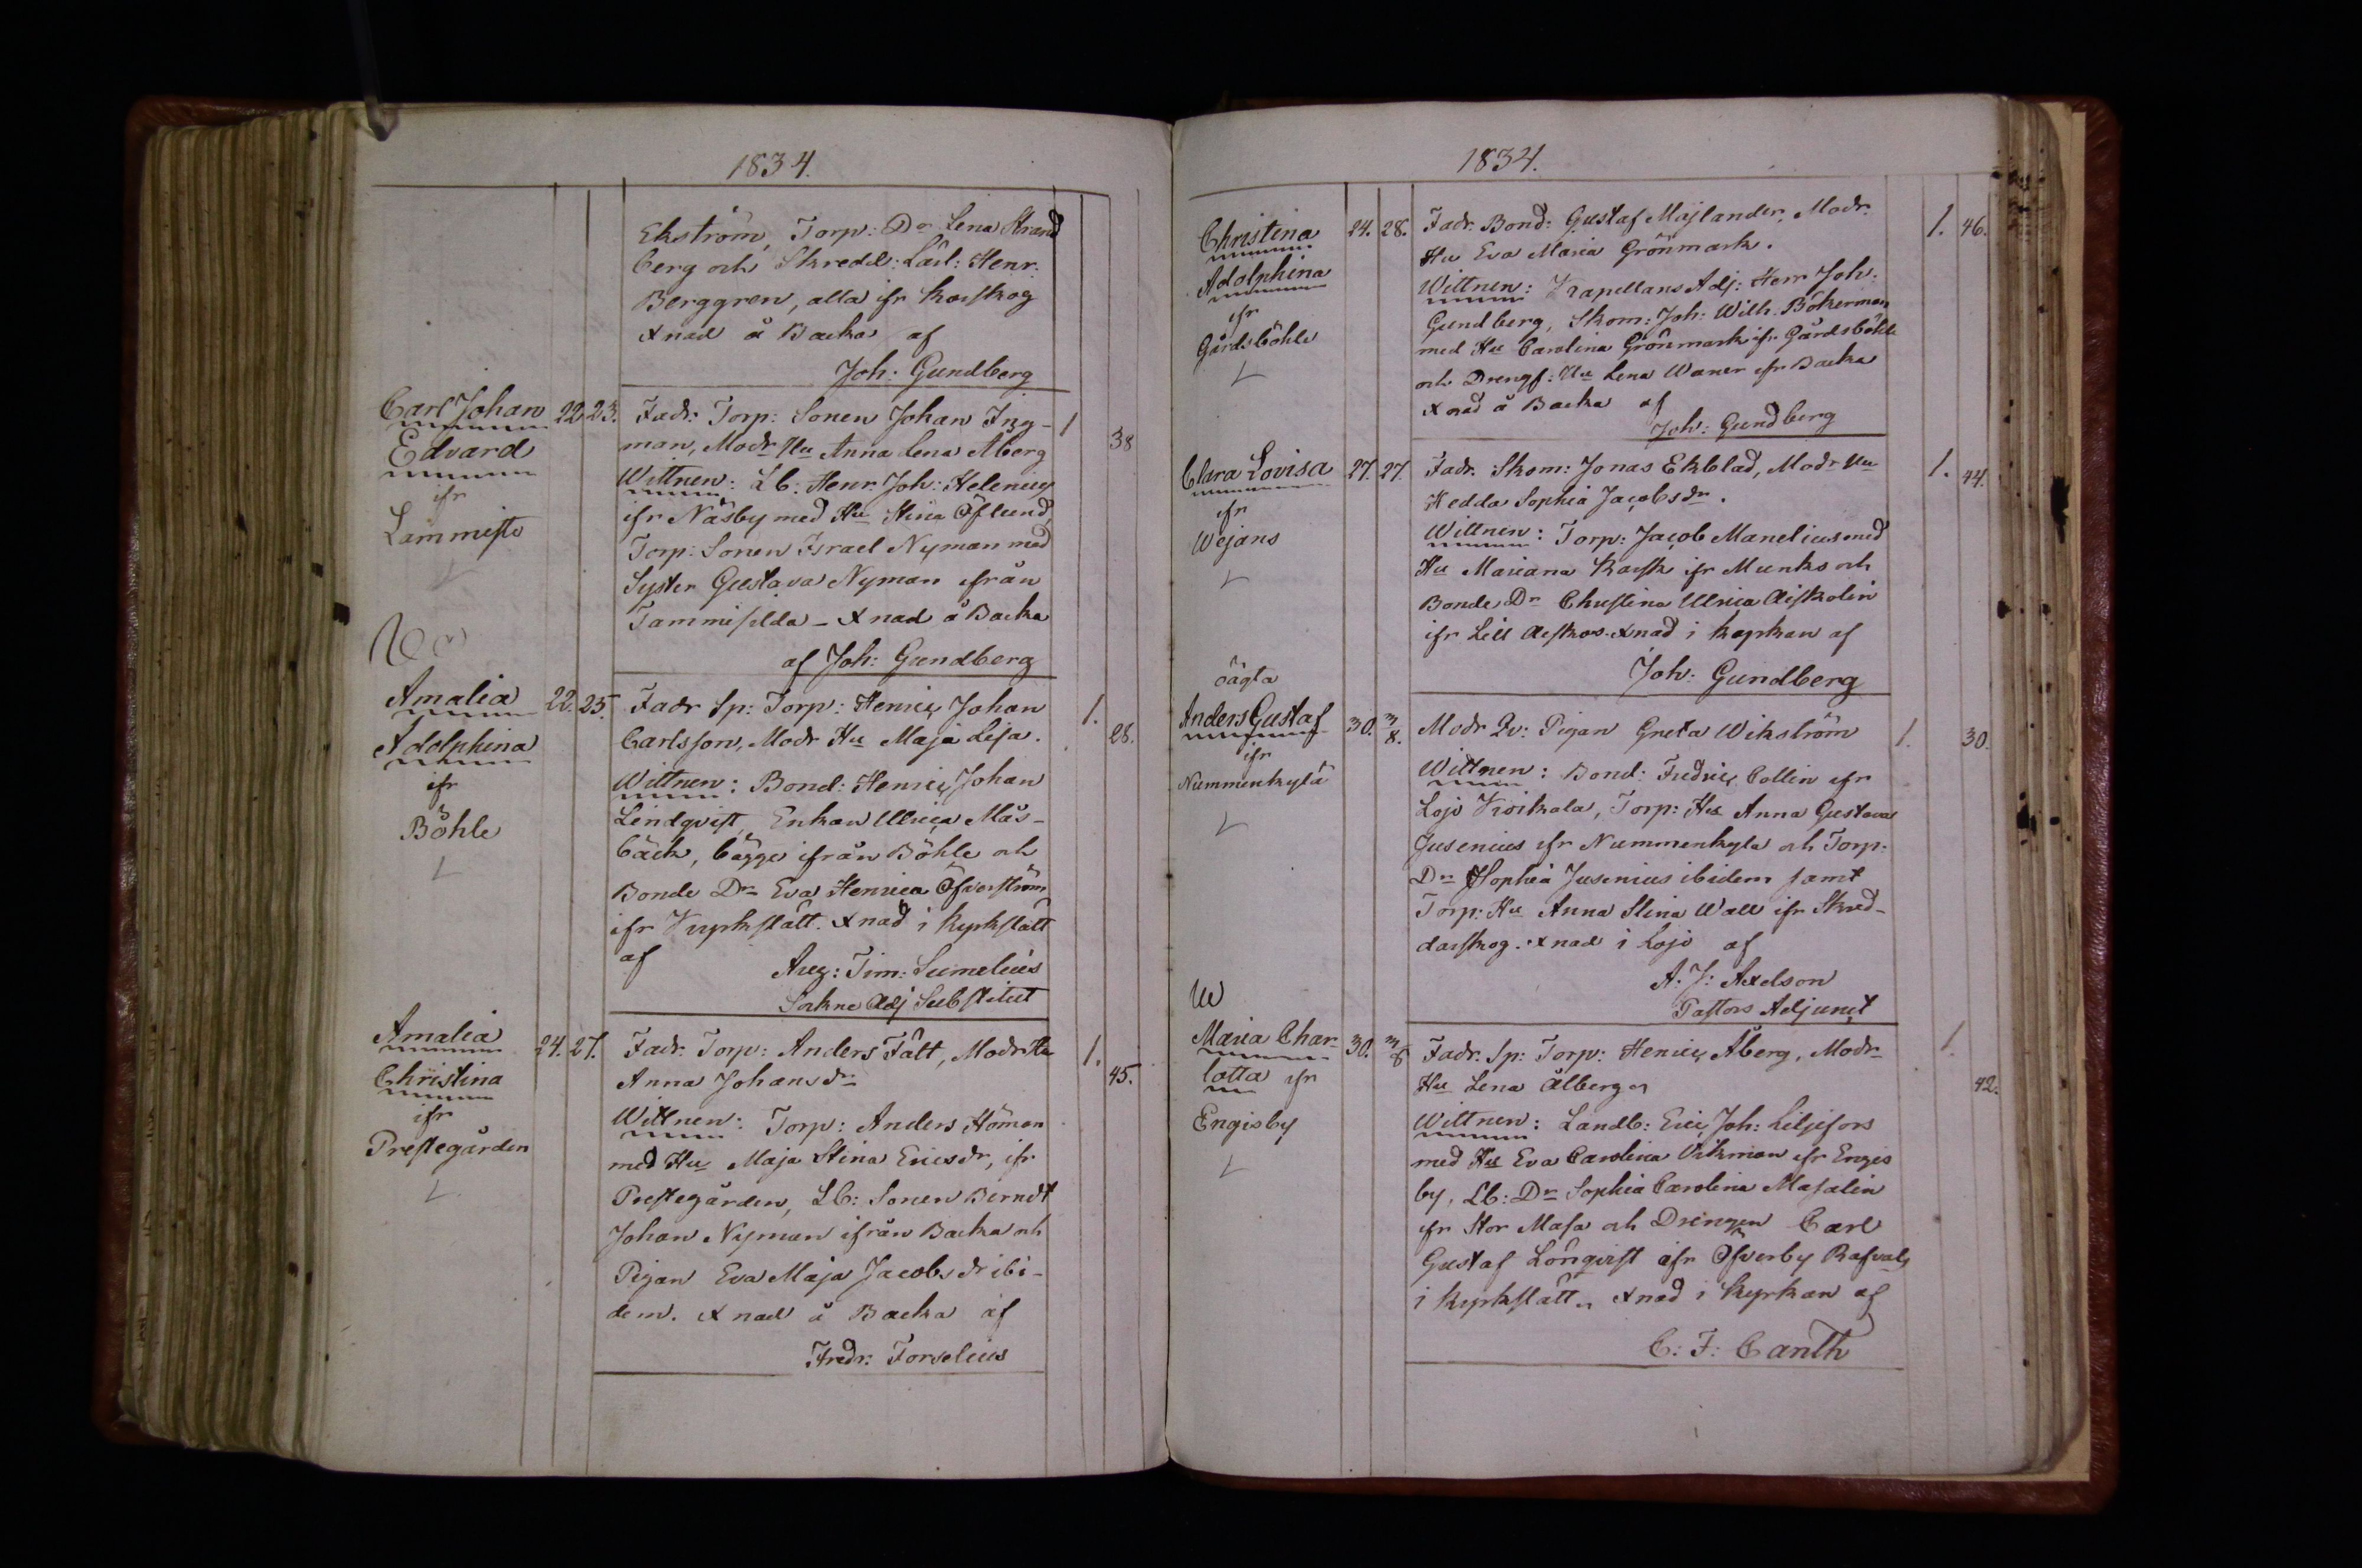 1834.
Ekström, Torp: Dr Lena Strand
berg och Skredd: Lärl: Henr:
Berggren, alla ifr Karskog
xnad å Backa af
Joh: Gundberg
Carl Johan 22 23. Fadr: Torp: Sonen Johan Ing- 1 38
Edvard man, Modr Hu Anna Lena Åberg
ifr Wittnen: Lb: Henr: Joh: Helenius
Lammisto ifr Näsby med Hu Stina Öflund,
Torp: Sonen Israel Nyman med
Syster Gustava Nyman ifrån
Tammisilda - xnad å Backa
af Joh: Gundberg
Amalia 22. 25. Fadr Sp: Torp: Henric Johan 1. 28.
Adolphina Carlsson, Modr Hu Maja Lisa.
ifr Wittnen: Bond: Henric Johan
Böhle Lindqvist, Enkan Ulrica Mås-
bäck, bägge ifrån Böhle och
Bonde Dr Eva Henrica Öfverström
ifr Kyrkslätt. xnad i Kyrkslätt
af Aug: Tim: Sumelius
Sokne Adj Substitut
Amalia 24. 27. Fadr: Torp: Anders Fält, Modr Hu 1. 45.
Christina Anna Johansdr
ifr Wittnen: Torp: Anders Höman
Prestegården med Hu Maja Stina Ericsdr, ifr
Prestegården, Lb: Sonen Berndt
Johan Nyman ifrån Backa och
Pigan Eva Maja Jacobsdr ibi-
dem. xnad å Backa af
Fredr: Forselius
1834.
Christina 24. 28. Fadr: Bond: Gustaf Majlander, Modr 1. 46.
Adolphina Hu Eva Maria Grönmark.
ifr Wittnen: Kapellans Adj: Herr Joh:
Gårdsböhle Gundberg, Skom: Joh: Wilh. Bökerman
med Hu Carolina Grönmark ifr Gårdsböhle
och Drengs: Hu Lena Waner ifr Backa
xnad å Backa af
Joh: Gundberg
Clara Lovisa 27. 27. Fadr. Skom: Jonas Ekblad, Modr Hu 1. 44.
ifr Hedda Sophia Jacobsdr.
Wejans Wittnen: Torp: Jacob Manelius med
Hu Mariana Karsk ifr Munks och
Bonde Dr Christina Ulrica Aiskolin
ifr Lill Aiskos. xnad i Kyrkan af
Joh: Gundberg
oägta
Anders Gustaf 30. 3/8. Modr Qv: Pigan Greta Wikström 1. 30.
ifr Wittnen: Bond: Fredric Collin ifr
Nummenkylä Lojo Kroikala, Torp: Hu Anna Gustava
Jusenius ifr Nummenkyla och Torp:
Dr Sophia Jusenius ibidem samt
Torp: Hu Anna Stina Wall ifr Skred-
darskog. xnad i Lojo af
A: J: Axelson
Pastors Adjunct
Maria Char- 30. 3/8 Fadr. Sp: Torp: Henric Åberg, Modr 1. 42.
lotta ifr Hu Lena Ålberg
Engisby Wittnen: Landb: Eric Joh: Liljefors
med Hu Eva Carolina Vikman ifr Engis
by, Lb: Dr Sophia Carolina Masalin
ifr Stor Masa och Drengen Carl
Gustaf Lönqvist ifr Öfverby Rafvals
i Kyrkslätt xnad i Kyrkan af
C: F: Canth